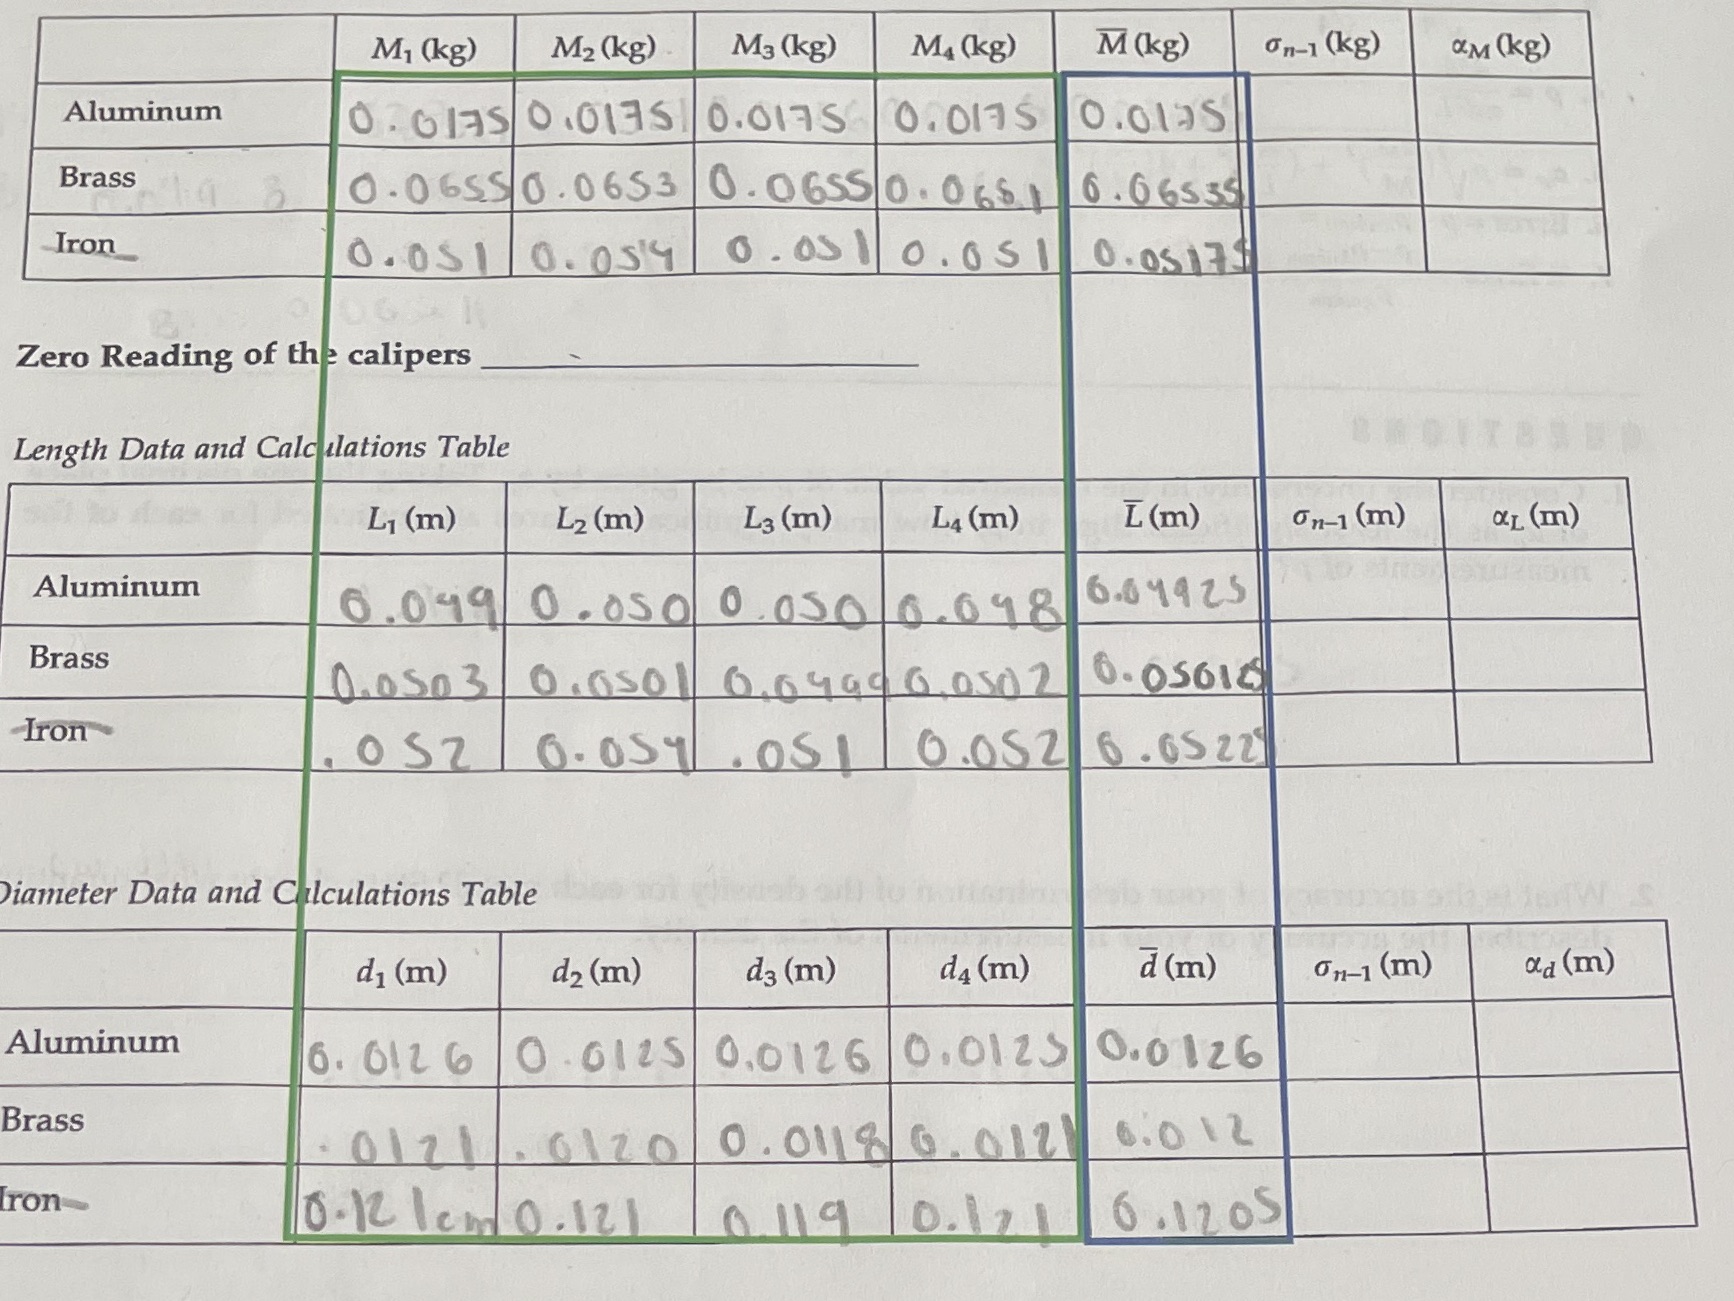 M₁ (kg) M₂ (kg) M₃ (kg) M₄ (kg) M̅ (kg) σₙ₋₁ (kg) αM (kg)
Aluminum 0.0175 0.0175 0.0175 0.0175 0.0175
Brass 0.0655 0.0653 0.0655 0.0651 0.06535
Iron 0.051 0.054 0.051 0.051 0.05175
Zero Reading of the calipers
Length Data and Calculations Table
L₁ (m) L₂ (m) L₃ (m) L₄ (m) L̅ (m) σₙ₋₁ (m) αL (m)
Aluminum 0.049 0.050 0.050 0.048 0.04925
Brass 0.0503 0.0501 0.0499 0.0502 0.05012
Iron .052 0.054 .051 0.052 0.0522
Diameter Data and Calculations Table
d₁ (m) d₂ (m) d₃ (m) d₄ (m) d̅ (m) σₙ₋₁ (m) αd (m)
Aluminum 0.0126 0.0125 0.0126 0.0125 0.0126
Brass .0121 .0120 0.0118 0.0121 0.012
Iron 0.121cm 0.121 0.119 0.121 0.1205